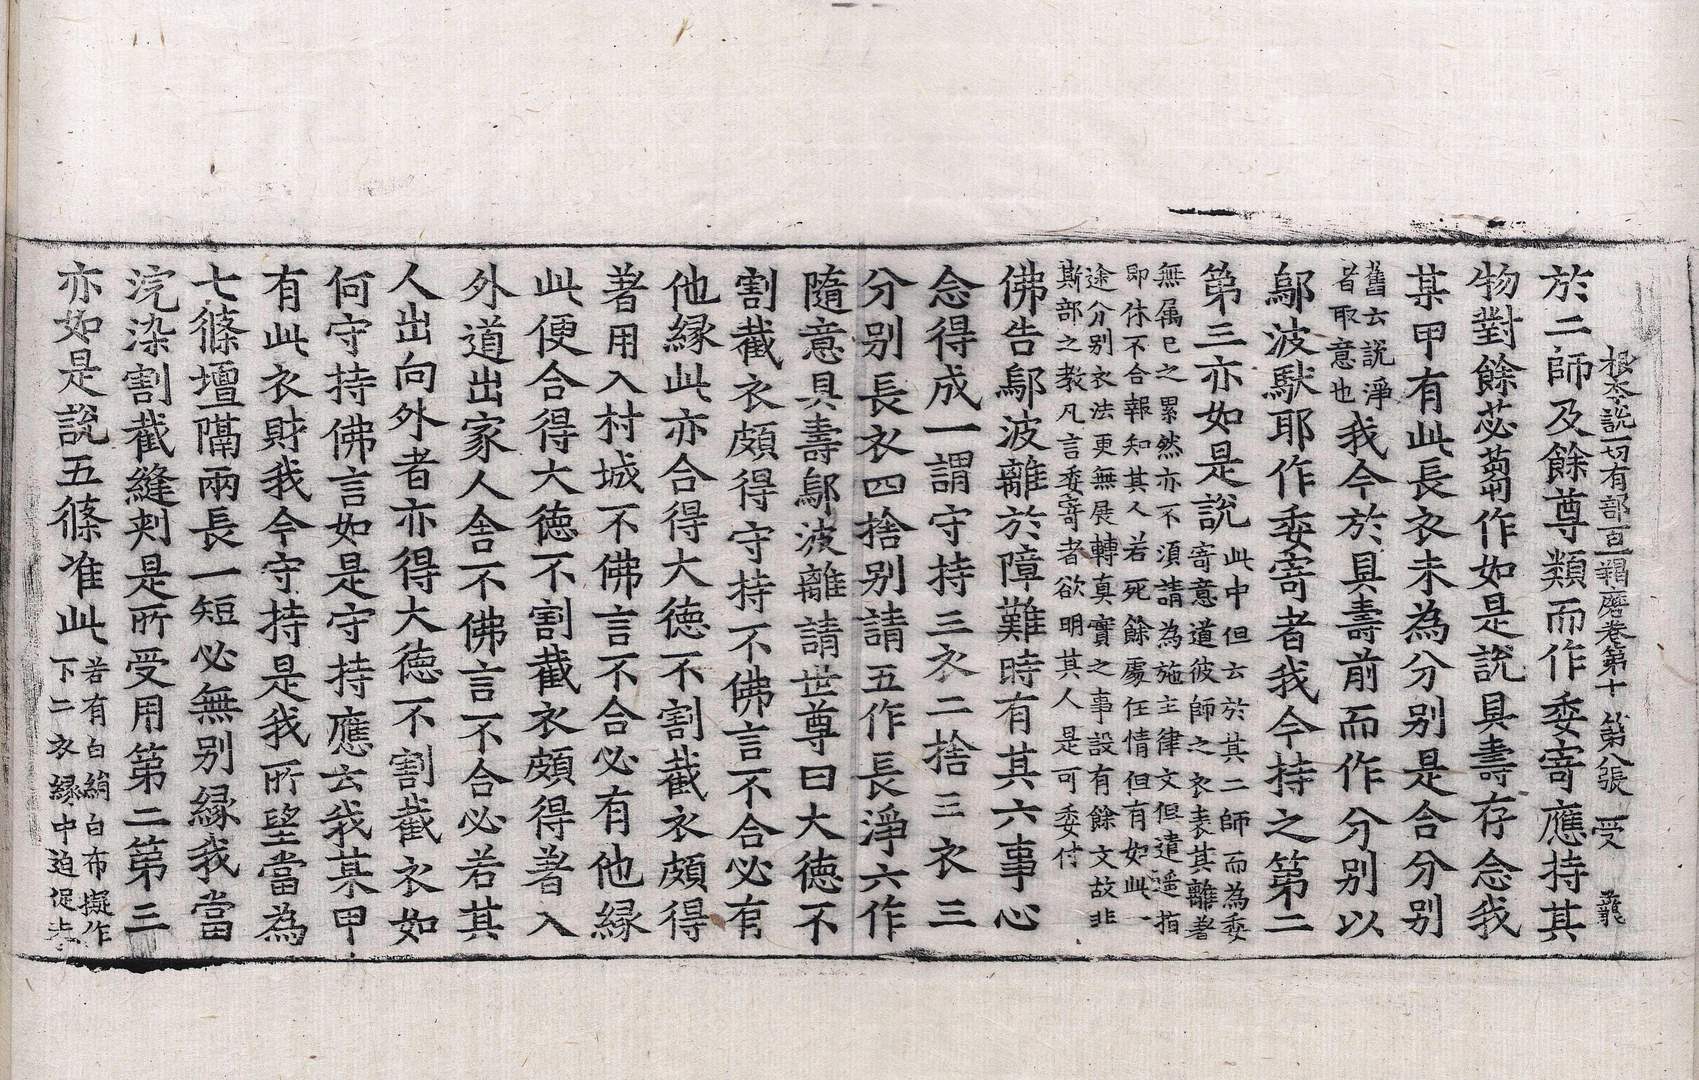 根本說一切有部百一羯磨卷第十 第八張 受
於二師及餘尊類而作委寄應持其
物對餘苾蒭作如是說具壽存念我
某甲有此長衣未為分別是合分別
舊云說淨
者取意也
我今於具壽前而作分別以
鄔波馱耶作委寄者我今持之第二
第三亦如是說
此中但云於其二師而為委
寄意道彼師之衣表其離著
無属己之累然亦不須請為施主律文但遣遥指
即休不合報知其人若死餘處任情但有如此一
途分別衣法更無展轉真實之事設有餘文故非
斯部之教凡言委寄者欲明其人是可委付
佛告鄔波離於障難時有其六事心
念得成一謂守持三衣二捨三衣三
分別長衣四捨別請五作長淨六作
隨意具壽鄔波離請世尊曰大德不
割截衣頗得守持不佛言不合必有
他緣此亦合得大德不割截衣頗得
著用入村城不佛言不合必有他緣
此便合得大德不割截衣頗得著入
外道出家人舍不佛言不合必若其
人出向外者亦得大德不割截衣如
何守持佛言如是守持應云我某甲
有此衣財我今守持是我所望當為
七條壇隔兩長一短必無別緣我當
浣染割截縫刾是所受用第二第三
亦如是說五條准此
若有白絹白布擬作
下二衣緣中迫促未